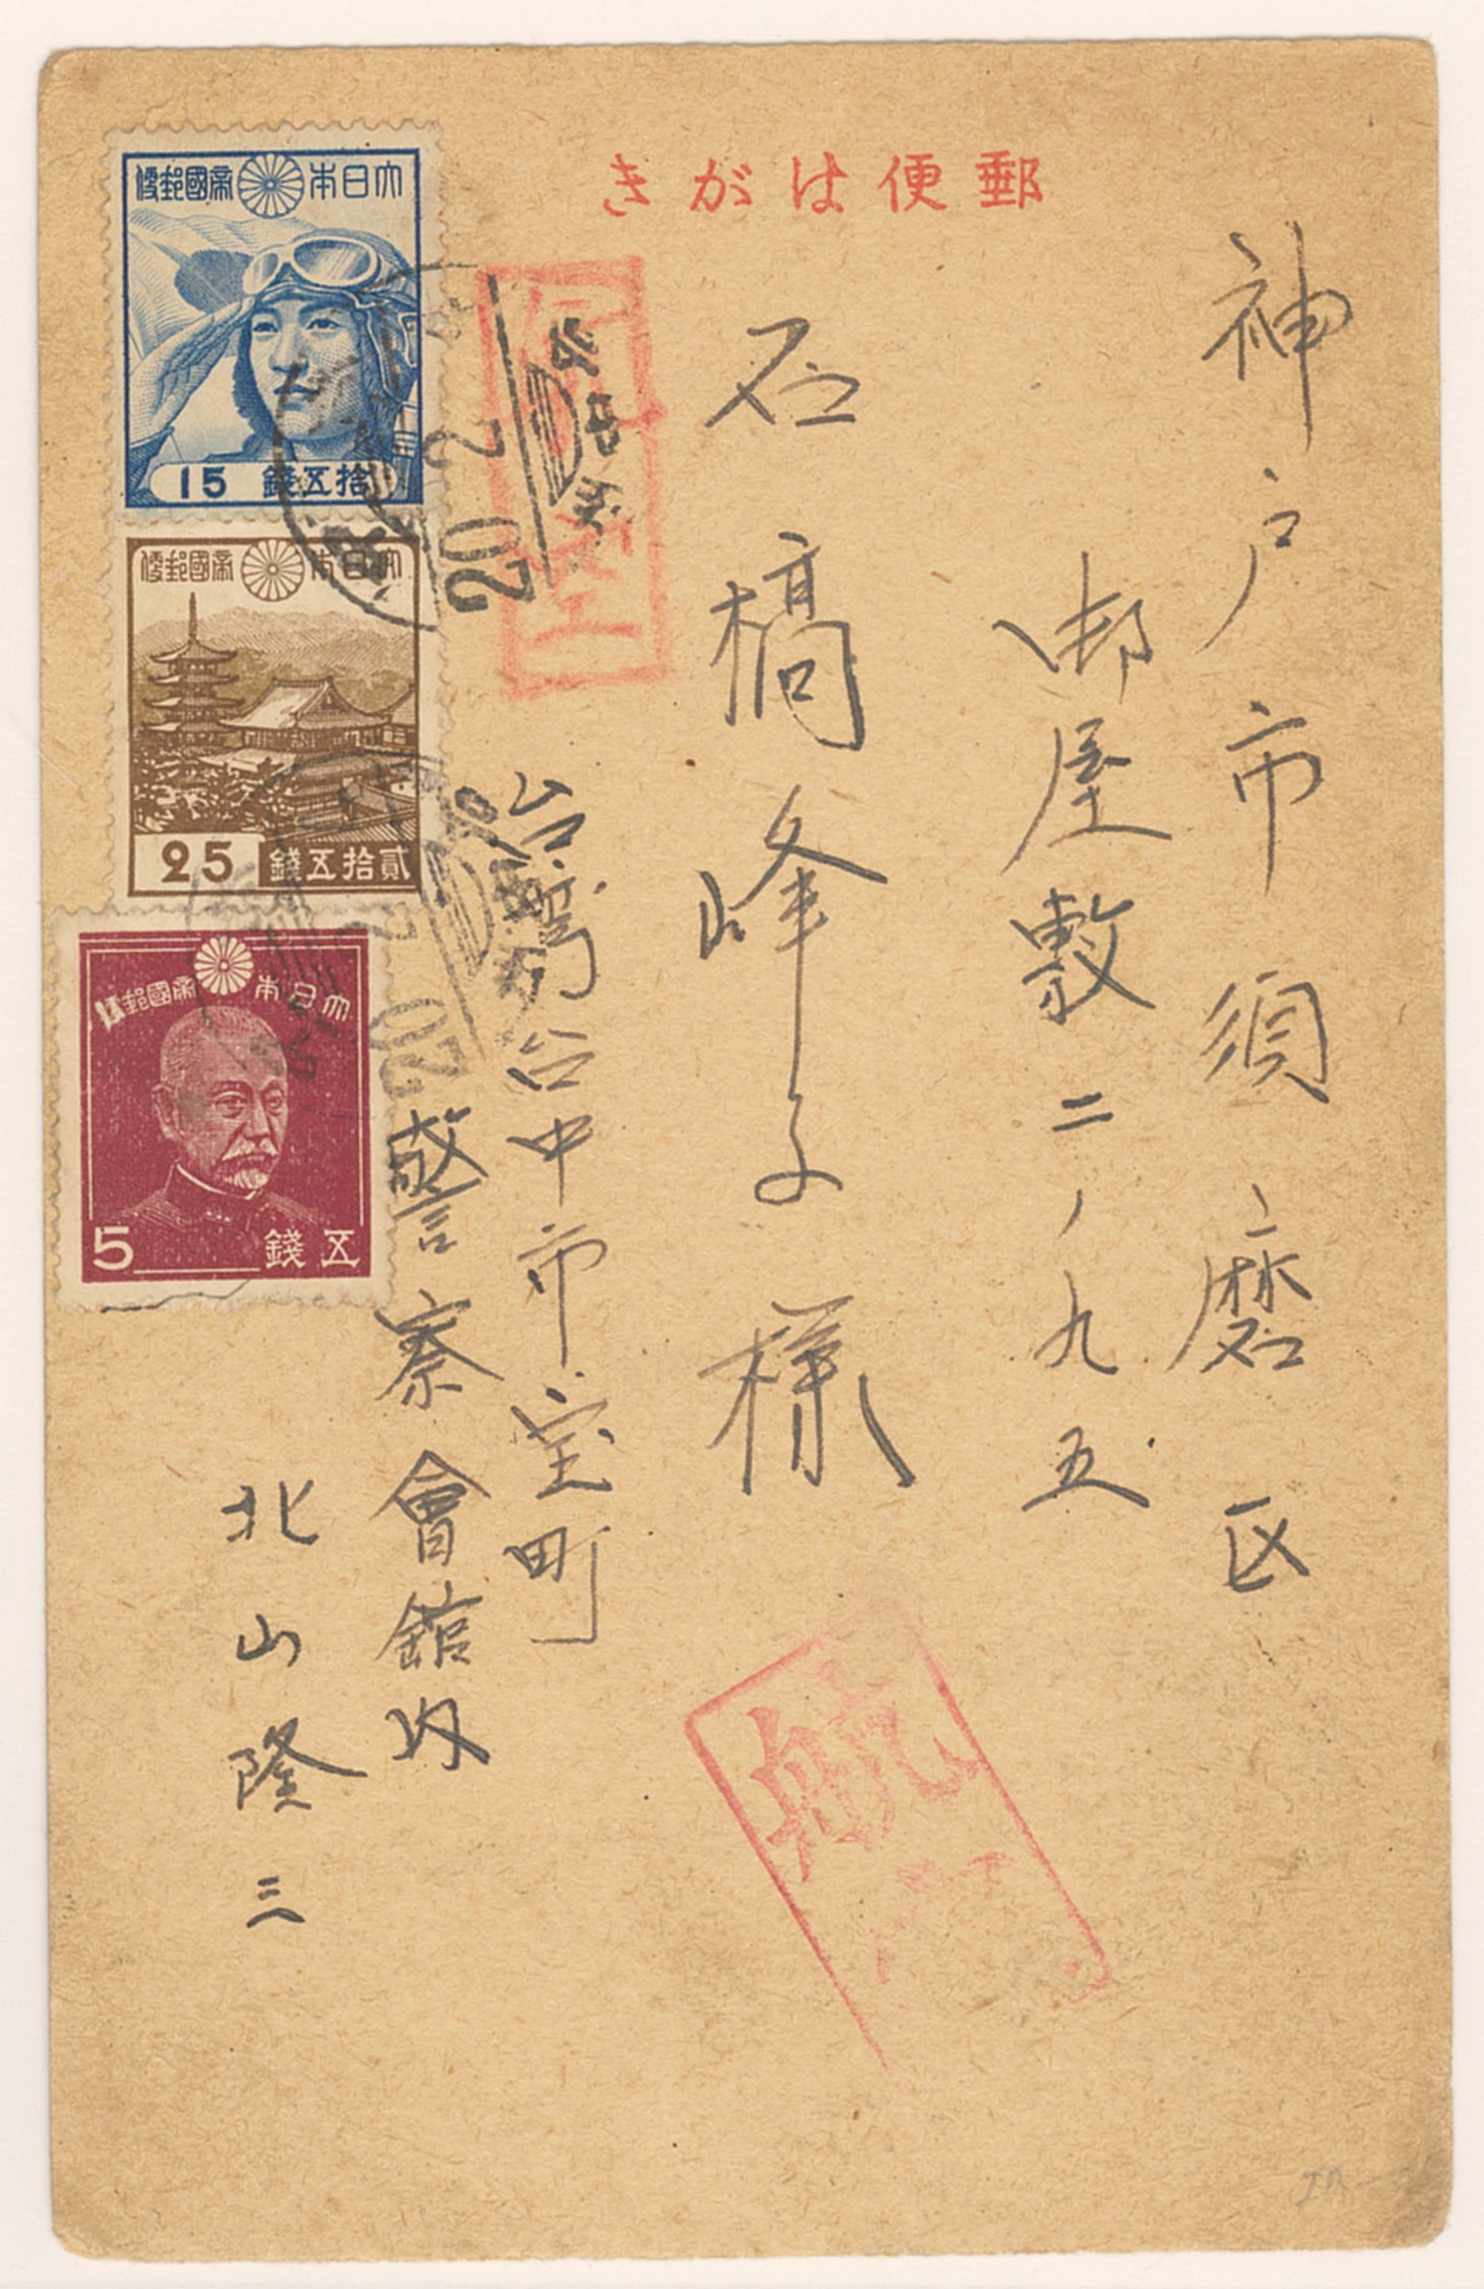 郵便はがき
神戸市須磨区
御屋敷二ノ九五
石橋峰子様
台湾台中市宝町
警察會館内
北山隆三
大日本帝國郵便
15 拾五錢
大日本帝國郵便
25 貳拾五錢
大日本帝國郵便
5 五錢
20
2
航空
航
20
2